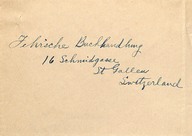 Fehr'sche Buchhandlung
16 Schmidgasse
St Gallen
Switzerland